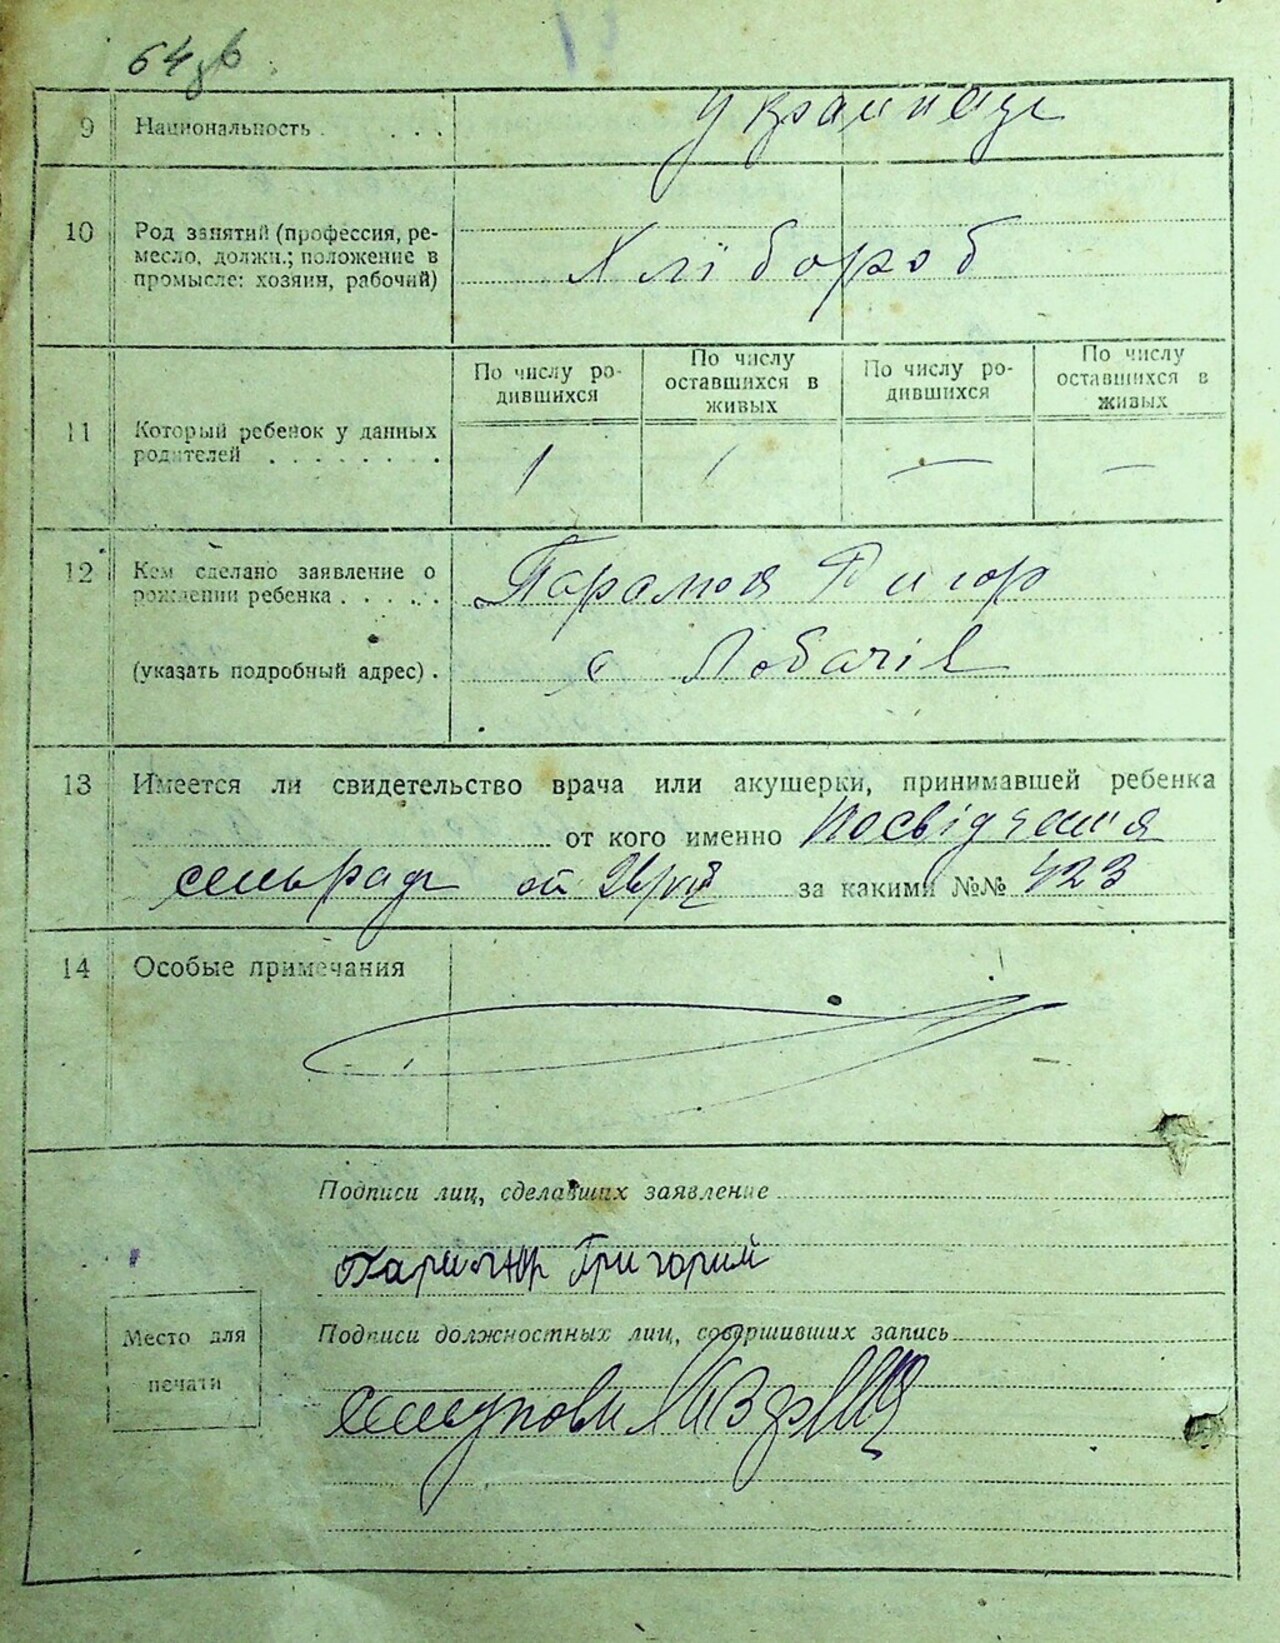 64зв
9 Национальность . . . . Українці
10 Род занятий (профессия, ре-
месло, должн.; положение в
промысле: хозяин, рабочий)
Хлібороб
По числу ро-
дившихся
По числу
оставшихся в
живых
По числу ро-
дившихся
По числу
оставшихся в
живых
11 Который ребенок у данных
родителей . . . . . . . .
1 1 — —
12 Кем сделано заявление о
рождении ребенка . . . . .
(указать подробный адрес) .
с Лобачів
13 Имеется ли свидетельство врача или акушерки, принимавшей ребенка
от кого именно Посвідчення
сельради от за какими №№ 423
14 Особые примечания
Подписи лиц, сделавших заявление
Григорий
Подписи должностных лиц, совершивших запись
Место для
печати